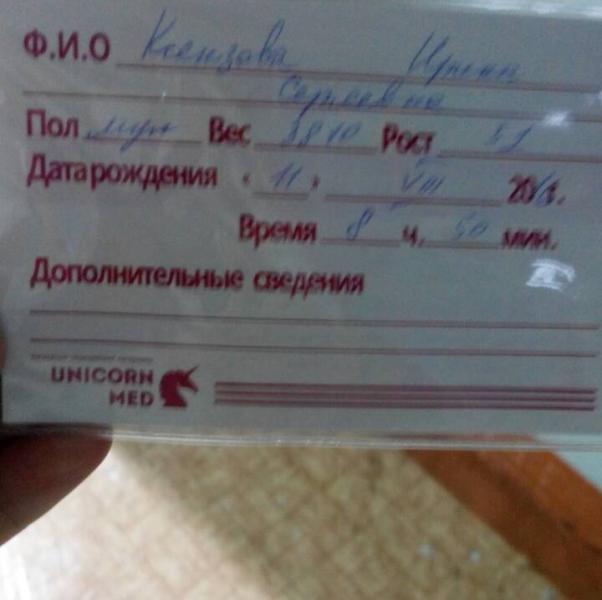 Ф.И.О Ксензова Ирина
Сергеевна
Пол муж Вес 3810 Рост 51
Дата рождения « 11 » VIII 2016г.
Время 8 ч. 50 мин.
Дополнительные сведения
UNICORN
MED